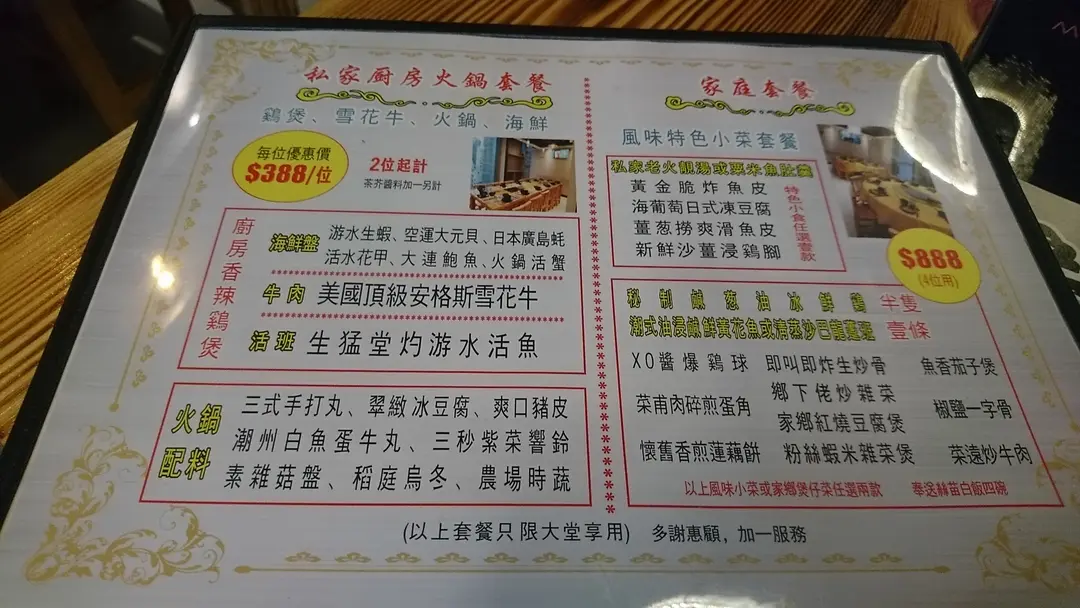 私家厨房火鍋套餐
鷄煲、雪花牛、火鍋、海鮮
每位優惠價
$388/位
2位起計
茶芥醬料加一另計
廚房香辣鷄煲
海鮮盤
游水生蝦、空運大元貝、日本廣島蚝
活水花甲、大連鮑魚、火鍋活蟹
牛肉
美國頂級安格斯雪花牛
活班
生猛堂灼游水活魚
火鍋配料
三式手打丸、翠緻冰豆腐、爽口豬皮
潮州白魚蛋牛丸、三秒紫菜響鈴
素雜菇盤、稻庭烏冬、農場時蔬
家庭套餐
風味特色小菜套餐
私家老火靚湯或粟米魚肚羹
黃金脆炸魚皮
海葡萄日式凍豆腐
薑葱撈爽滑魚皮
新鮮沙薑浸鷄腳
特色小食任選壹款
$888
(4位用)
秘制鹹葱油冰鮮鷄 半隻
潮式油浸鹹鮮黃花魚或清蒸沙巴龍躉班 壹條
XO醬爆鷄球 即叫即炸生炒骨 魚香茄子煲
菜甫肉碎煎蛋角 鄉下佬炒雜菜 椒鹽一字骨
家鄉紅燒豆腐煲
懷舊香煎蓮藕餅 粉絲蝦米雜菜煲 菜遠炒牛肉
以上風味小菜或家鄉煲仔菜任選兩款 奉送絲苗白飯四碗
(以上套餐只限大堂享用) 多謝惠顧，加一服務